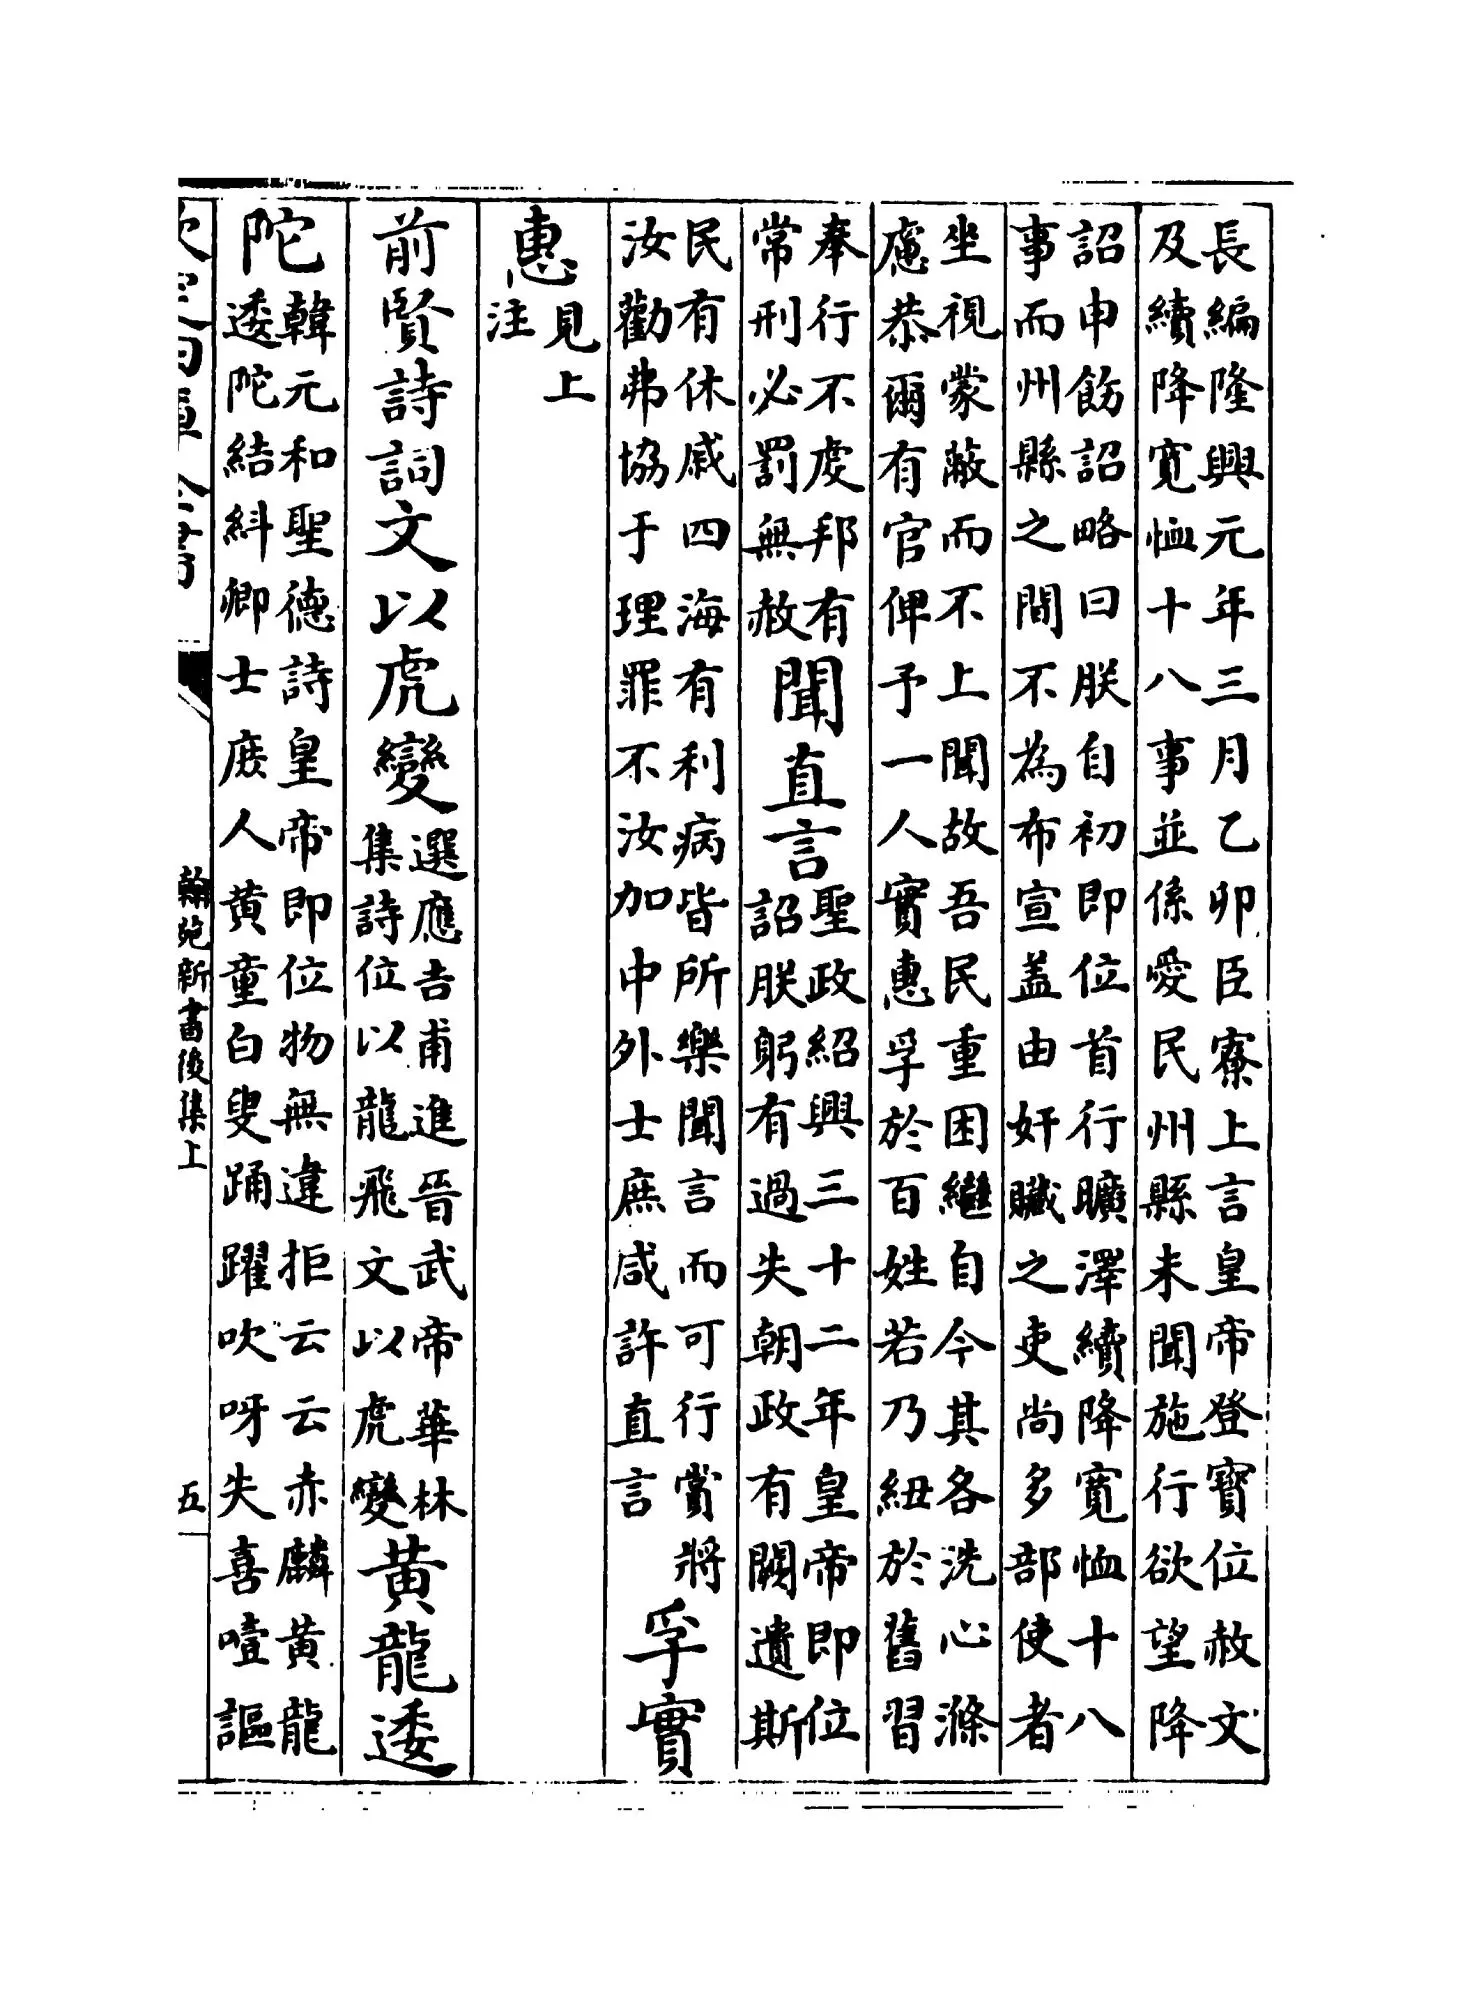 長編隆興元年三月乙卯臣寮上言皇帝登寶位赦文
及續降寛恤十八事並係愛民州縣未聞施行欲望降
詔申飭詔略曰朕自初即位首行曠澤續降寛恤十八
事而州縣之間不為布宣盖由奸贓之吏尚多部使者
坐視蒙蔽而不上聞故吾民重困繼自今其各洗心滌
慮恭爾有官俾予一人實惠孚於百姓若乃紐於舊習
奉行不虔邦有
常刑必罰無赦
聞直言
聖政紹興三十二年皇帝即位
詔朕躬有過失朝政有闕遺斯
民有休戚四海有利病皆所樂聞言而可行賞將
汝勸弗協于理罪不汝加中外士庶咸許直言
孚實
惠
見上
注
前賢詩詞文以虎變
選應吉甫進晉武帝華林
集詩位以龍飛文以虎變
黄龍逶
陀
韓元和聖德詩皇帝即位物無違拒云云赤麟黄龍
逶陀結糾卿士庶人黄童白叟踊躍吹呀失喜噎謳
欽定四庫全書
翰苑新書後集上
五